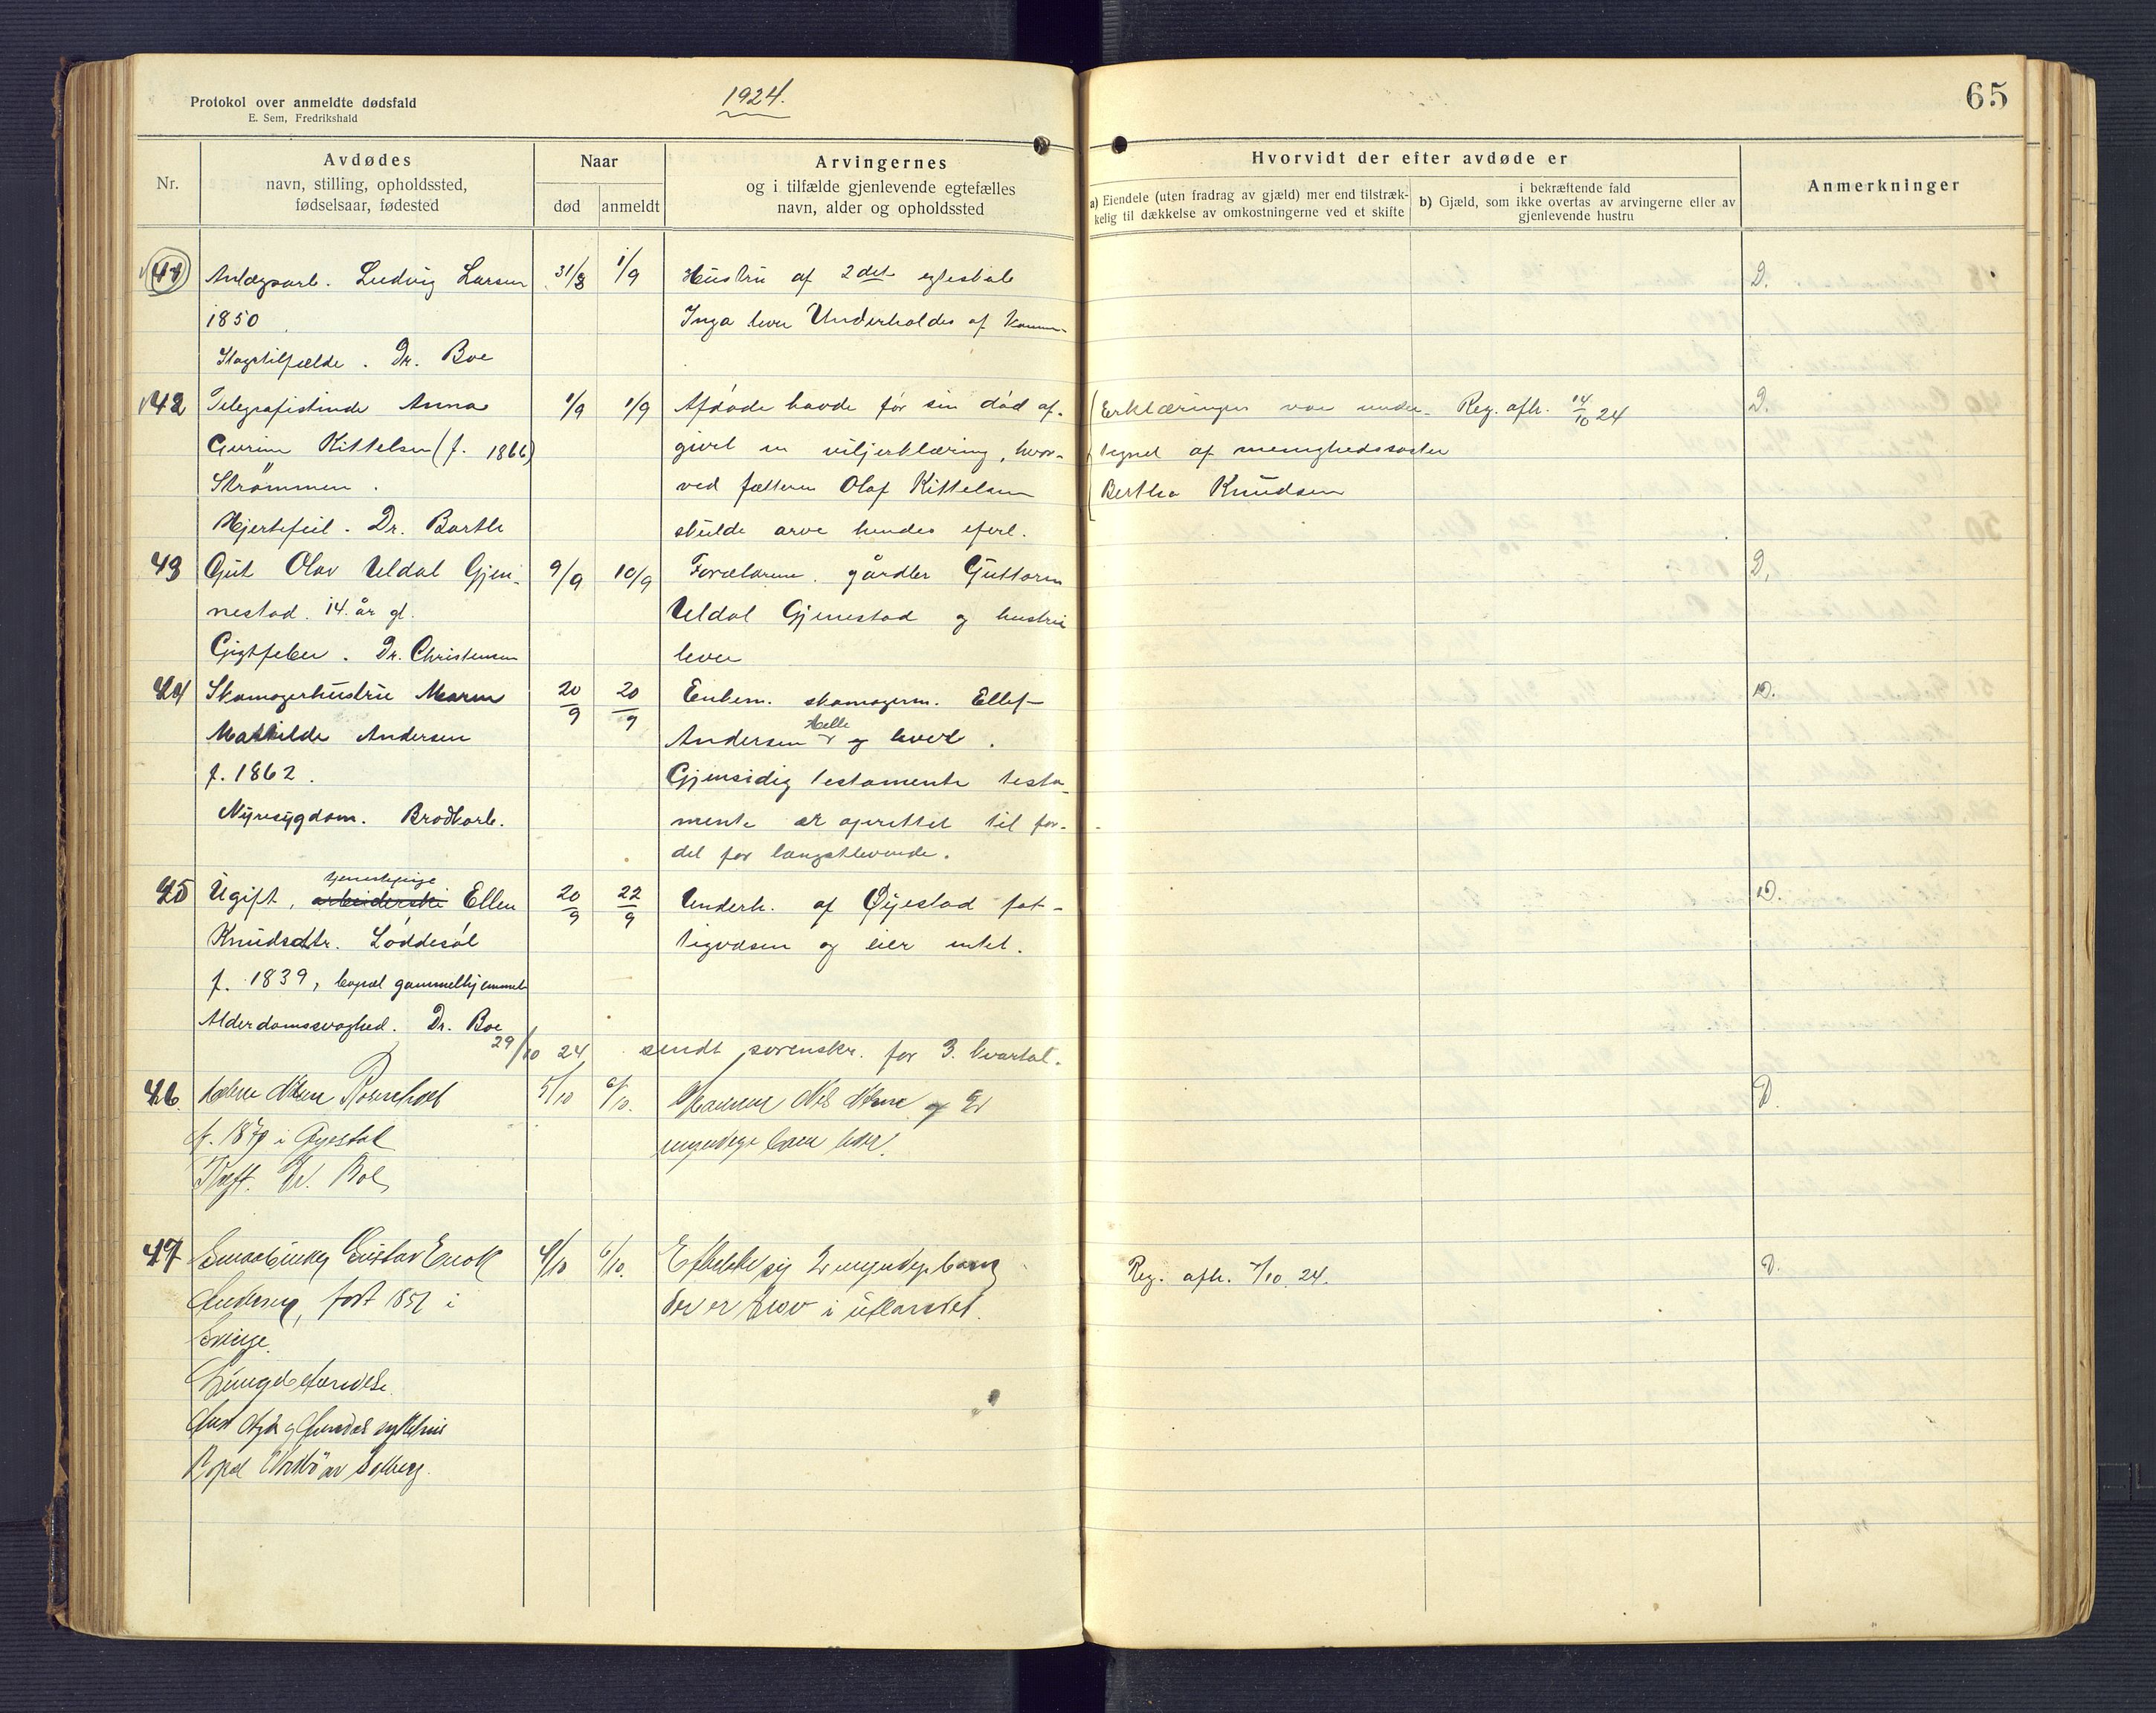 Protokol over anmeldte dødsfald
E. Sem, Fredrikshald
1924.
65
Nr.
Avdødes
navn, stilling, opholdssted,
fødselsaar, fødested
Naar
død
anmeldt
Arvingernes
og i tilfælde gjenlevende egtefælles
navn, alder og opholdssted
Hvorvidt der efter avdøde er
a) Eiendele (uten fradrag av gjæld) mer end tilstræk-
kelig til dækkelse av omkostningerne ved et skifte
i bekræftende fald
b) Gjæld, som ikke overtas av arvingerne eller av
gjenlevende hustru
Anmerkninger
41 Anlægsarb. Ludvig Larsen 31/8 1/9 Hustru af 2det egteskab D.
1850 Inga lever Underholdes af Komm-
Slagtilfælde. Dr. Boe
42 Telegrafistinde Anna 1/9 1/9 Afdøde havde før sin død af- Erklæringen var under- Reg. afh. 14/10 24 D.
Gurine Kittelsen (f. 1866) givet en viljerklæring, hvor- tegnet af menighedssøster
Strømmen. ved fætteren Olaf Kittelsen Bertha Knudsen
Hjertefeil. Dr. Barth skulde arve hendes efterl.
43 Gut Olav Uldal Gjen- 9/9 10/9 Forældrene, gårdbr Guttorm D.
nestad. 14 år gl. Uldal Gjennestad og hustru
Gigtfeber. Dr. Christensen lever
44 Skomagerhustru Maren 20/9 20/9 Enkem. skomagerm. Ellef D.
Mathilde Andersen Andersen Helle og lever.
f. 1862. Gjensidig testamente testa-
Nyresygdom. Brodtkorb. mente er oprettet til for-
del for længstlevende.
45 Ugift, arbeiderske tjenestepige Ellen 20/9 22/9 Underh. af Øyestad fat- D.
Knudsdtr. Løddesøl tigvæsen og eier intet.
f. 1839, bopæl gammelhjemmet
Alderdomssvaghed. Dr. Boe
29/10 24 sendt sorenskr. for 3. kvartal.
46. Rosenholt 5/10 6/10. og D.
f. 1870 i Øyestad myndige barn lever.
Kræft. Dr. Boe
47 Gustav Enok 4/10 6/10. Efterlatte sig 2 myndige barn Reg. afh. 7/10. 24. D.
Andersen, født 1851 i der er i utlandet.
Sverige.
Lungebetændelse.
Aust Agder Arendals sykehus
Bopæl Solberg.